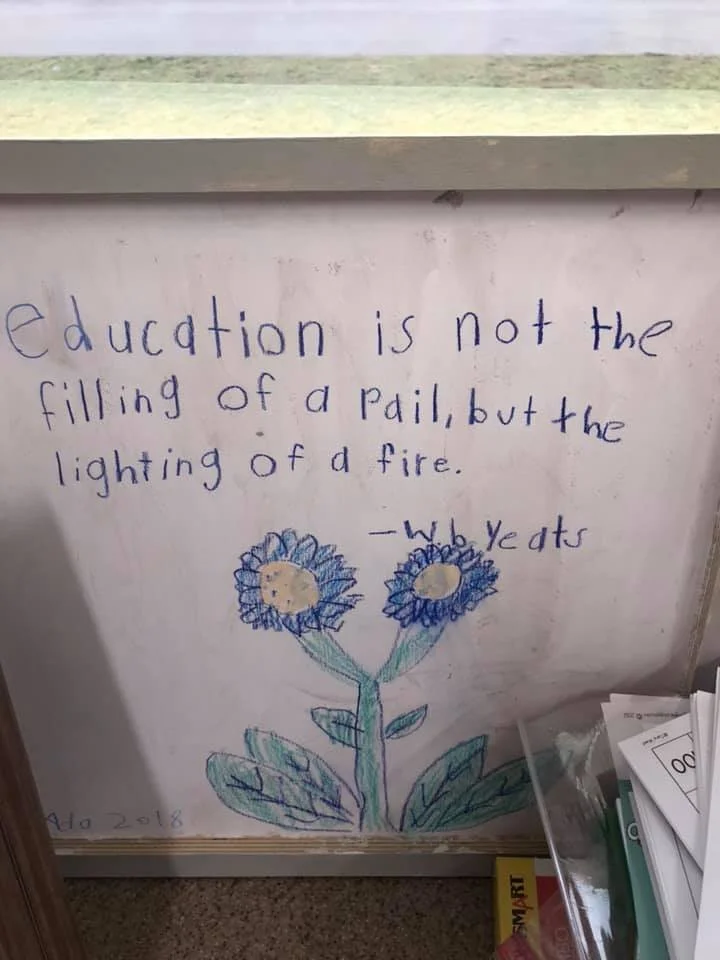 education is not the
filling of a pail, but the
lighting of a fire.
– W.b Yeats
2018
SMART